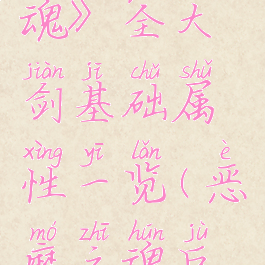 魂》全大
jiàn jī chǔ shǔ
剑基础属
xìng yī lǎn è
性一览(恶
mó zhī hún jù
魔之魂巨